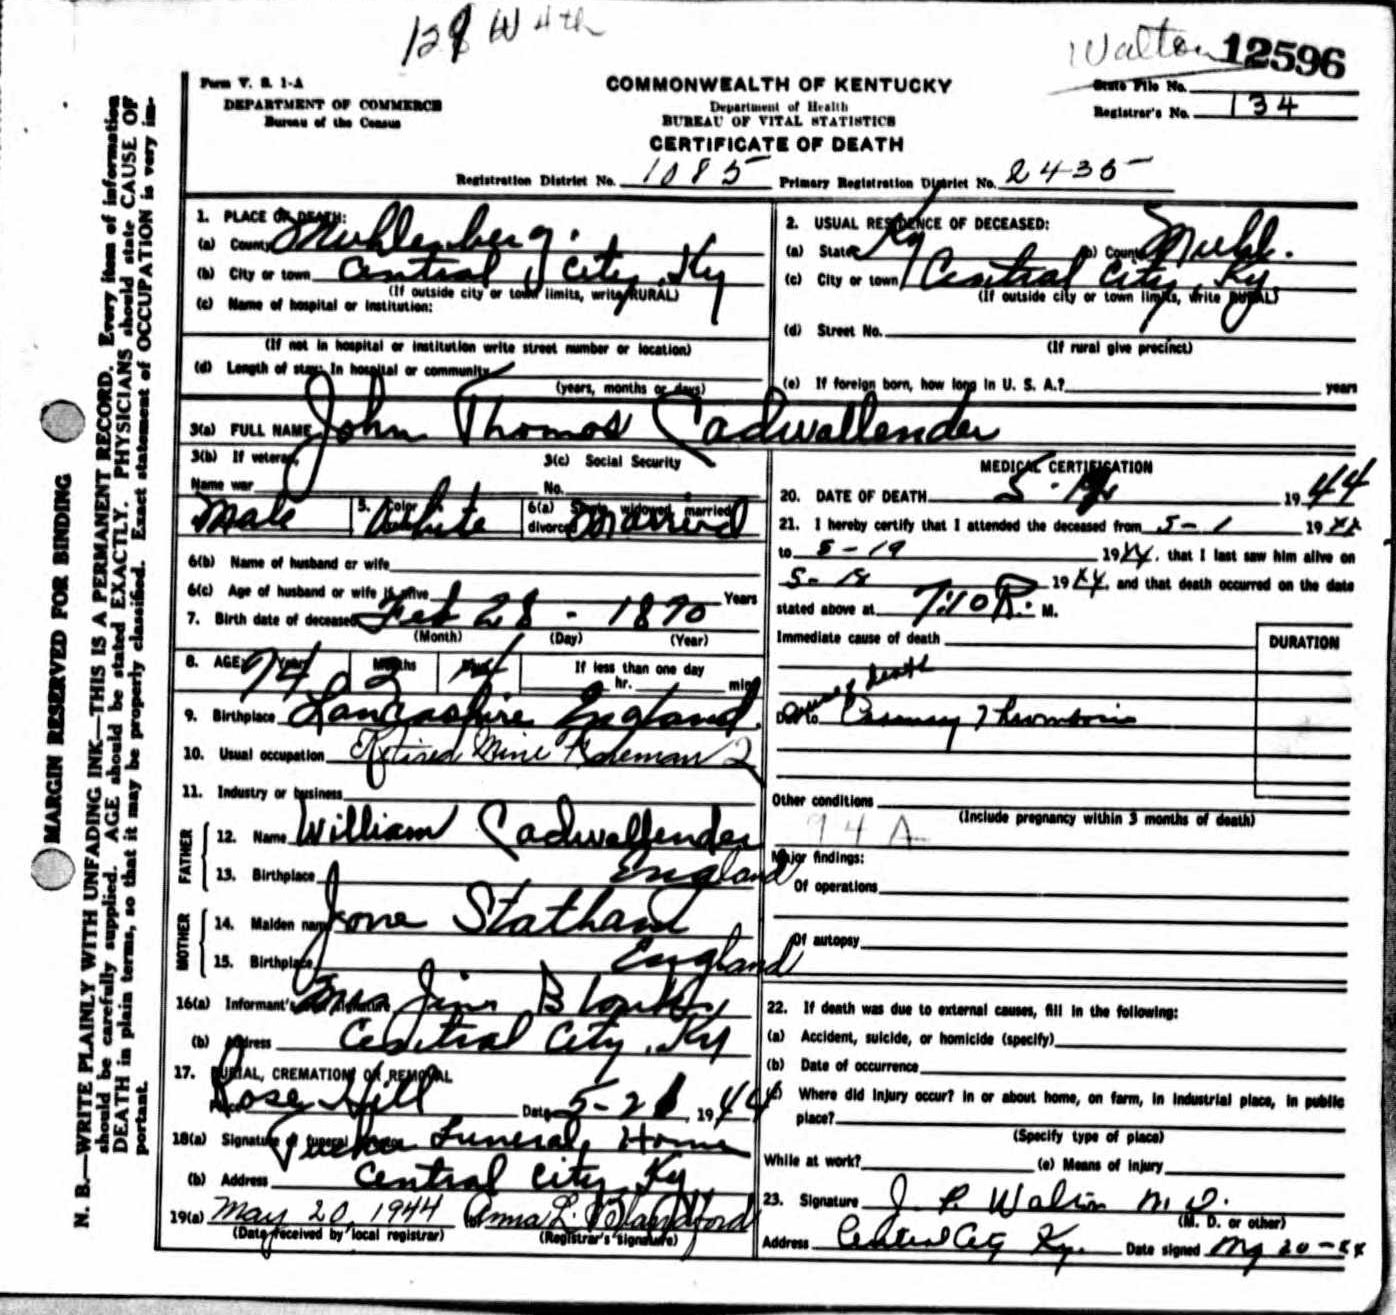 129 W 4th
Walton 12596
Form V. S. 1-A
DEPARTMENT OF COMMERCE
Bureau of the Census
COMMONWEALTH OF KENTUCKY
Department of Health
BUREAU OF VITAL STATISTICS
CERTIFICATE OF DEATH
State File No.
Registrar's No. 134
Registration District No. 1085 Primary Registration District No. 2435
MARGIN RESERVED FOR BINDING
N. B.—WRITE PLAINLY WITH UNFADING INK—THIS IS A PERMANENT RECORD. Every item of information
should be carefully supplied. AGE should be stated EXACTLY. PHYSICIANS should state CAUSE OF
DEATH in plain terms, so that it may be properly classified. Exact statement of OCCUPATION is very im-
portant.
1. PLACE OF DEATH:
(a) County Muhlenberg.
(b) City or town Central City, Ky
(If outside city or town limits, write RURAL)
(c) Name of hospital or institution:
(If not in hospital or institution write street number or location)
(d) Length of stay: In hospital or community
(years, months or days)
2. USUAL RESIDENCE OF DECEASED:
(a) State Ky (b) County Muhl.
(c) City or town Central City, Ky
(If outside city or town limits, write RURAL)
(d) Street No.
(If rural give precinct)
(e) If foreign born, how long in U. S. A.? years
3(a) FULL NAME John Thomas Cadwallender
3(b) If veteran,
Name war
3(c) Social Security
No.
Male 5. Color White 6(a) Single, widowed, married, divorced Married
6(b) Name of husband or wife
6(c) Age of husband or wife if alive Years
7. Birth date of deceased Feb 28 - 1870
(Month) (Day) (Year)
8. AGE 74 Years 2 Months If less than one day
hr. min.
9. Birthplace Lancashire England.
10. Usual occupation Retired Mine Foreman 2
11. Industry or business
FATHER
12. Name William Cadwallender
13. Birthplace England
MOTHER
14. Maiden name Jane Statham
15. Birthplace England
16(a) Informant's own signature Mrs Jim B
(b) Address Central City, Ky
17. BURIAL, CREMATION, OR REMOVAL
Place Rose Hill Date 5-21, 1944
18(a) Signature of funeral director Tucker Funeral Home
(b) Address Central City, Ky,
19(a) May 20, 1944 (b) Anna L. Blandford
(Date received by local registrar) (Registrar's signature)
MEDICAL CERTIFICATION
20. DATE OF DEATH 5- 1944
21. I hereby certify that I attended the deceased from 5-1 1944
to 5-19 1944, that I last saw him alive on
5-18 1944, and that death occurred on the date
stated above at 7:10 P. M.
Immediate cause of death
DURATION
Cause of death
Due to Coronary Thrombosis
Other conditions
(Include pregnancy within 3 months of death)
94A
Major findings:
Of operations
Of autopsy
22. If death was due to external causes, fill in the following:
(a) Accident, suicide, or homicide (specify)
(b) Date of occurrence
(c) Where did injury occur? In or about home, on farm, in industrial place, in public
place?
(Specify type of place)
While at work? (e) Means of injury
23. Signature J. P. Walton M. D.
(M. D. or other)
Address Central City Ky. Date signed May 20-44